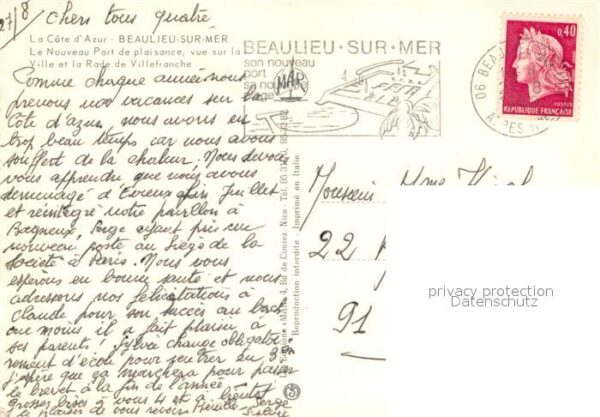 27/8
Chers tous quatre
La Côte d'Azur - BEAULIEU-SUR-MER
Le Nouveau Port de plaisance, vue sur la
Ville et la Rade de Villefranche
Comme chaque année nous
prenons nos vacances sur la
Côte d'azur, nous avons eu
trop beau temps car nous avons
souffert de la chaleur. Nous devons
vous apprendre que nous avons
déménagé d'Evreux fin Juillet
et réintégré notre pavillon à
Bagneux, Serge ayant pris un
nouveau poste au Siège de la
Société à Paris. Nous vous
espérons en bonne santé et nous
adressons nos félicitations à
Claude pour son succès au bac
au moins il a fait plaisir à
ses parents! Sylvie change obligatoi
rement d'école pour rentrer en 3e
j'espère que ça marchera pour passer
le brevet à la fin de l'année
grosses bises à vous 4 et à bientôt
le plaisir de vous revoir Serge
Sylvie
BEAULIEU·SUR·MER
son nouveau
port
sa
plage
MAR
06 BEA
ALPES
0,40
POSTES
REPUBLIQUE FRANÇAISE
Bd de Cimiez Nice - Tél.
Reproduction interdite - Imprimé en Italie
Monsieur Mme
22
91
privacy protection
Datenschutz